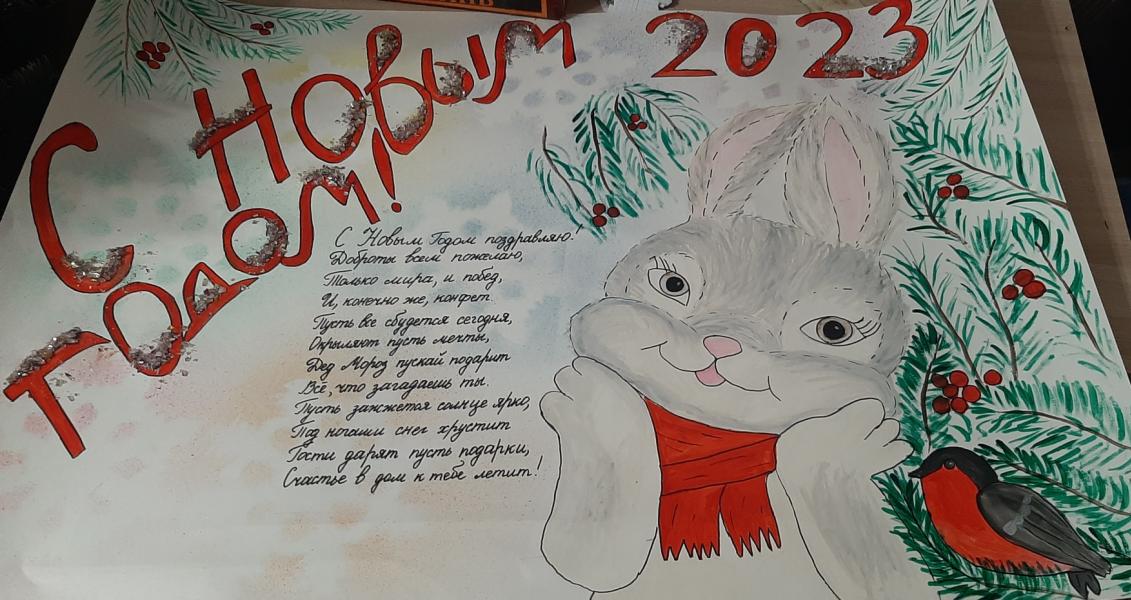 С Новым 2023
Годом!
С Новым Годом поздравляю!
Доброты всем пожелаю,
Только мира, и побед,
И, конечно же, конфет.
Пусть все сбудется сегодня,
Окрыляют пусть мечты,
Дед Мороз пускай подарит
Всё, что загадаешь ты.
Пусть зажжется солнце ярко,
Под ногами снег хрустит
Гости дарят пусть подарки,
Счастье в дом к тебе летит!